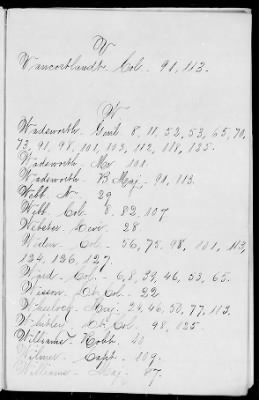 V
Vancortlandt. Col. 91, 113.
W
Wadsworth. Genl. 8, 11, 52, 53, 65, 70,
73, 91, 98, 101, 102, 112, 118, 125.
Wadsworth Mr 101.
Wadsworth. B. Maj. 91, 113.
Webb. N. 29
Webb. Col. 8, 82, 107
Webster. 28.
Col. 56, 75, 98, 101, 113,
124, 126, 127.
Ward. Col. 6, 8, 39, 46, 53, 65.
Lt. Col. 22
Wheelock. Maj. 24, 46, 50, 77, 113.
Lt. Col. 98, 125.
Williams. Robt. 20
Wilmer. Capt. 109.
Williams. Maj. 47.